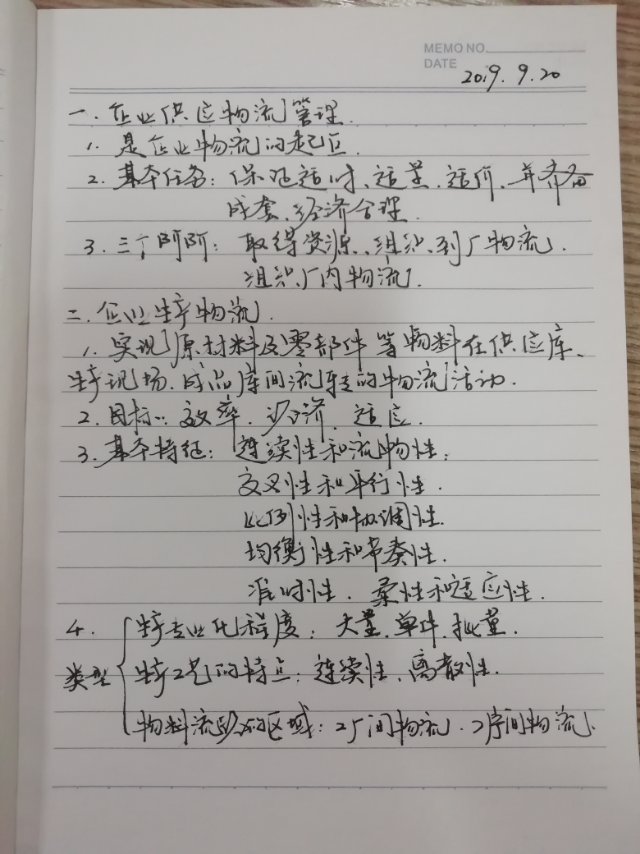 MEMO NO.
DATE 2019.9.20
一.企业供应物流管理.
1.是企业物流的起点.
2.基本任务:保证适时、适量、适价、并齐备
成套、经济合理.
3.三个阶段:取得资源、组织到厂物流.
组织厂内物流.
二.企业生产物流.
1.实现原材料及零部件等物料在供应库、
生产现场、成品库间流转的物流活动.
2.目标:效率、经济、适应.
3.基本特征:连续性和流物性;
交叉性和平行性.
比例性和协调性.
均衡性和节奏性.
准时性、柔性和适应性.
4.
类型
生产专业化程度:大量、单件、批量.
生产工艺的特点:连续性、离散性.
物料流动的区域:工厂间物流、工序间物流.